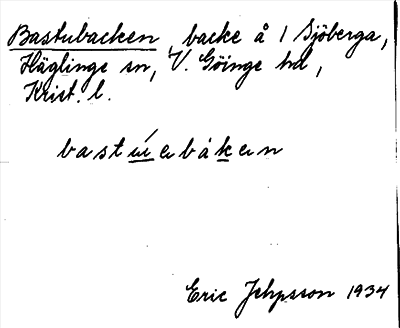 Bastubacken, backe å 1 Sjöberga,
Häglinge sn, V. Göinge hd,
Krist. l.
Eric Jepsson 1934